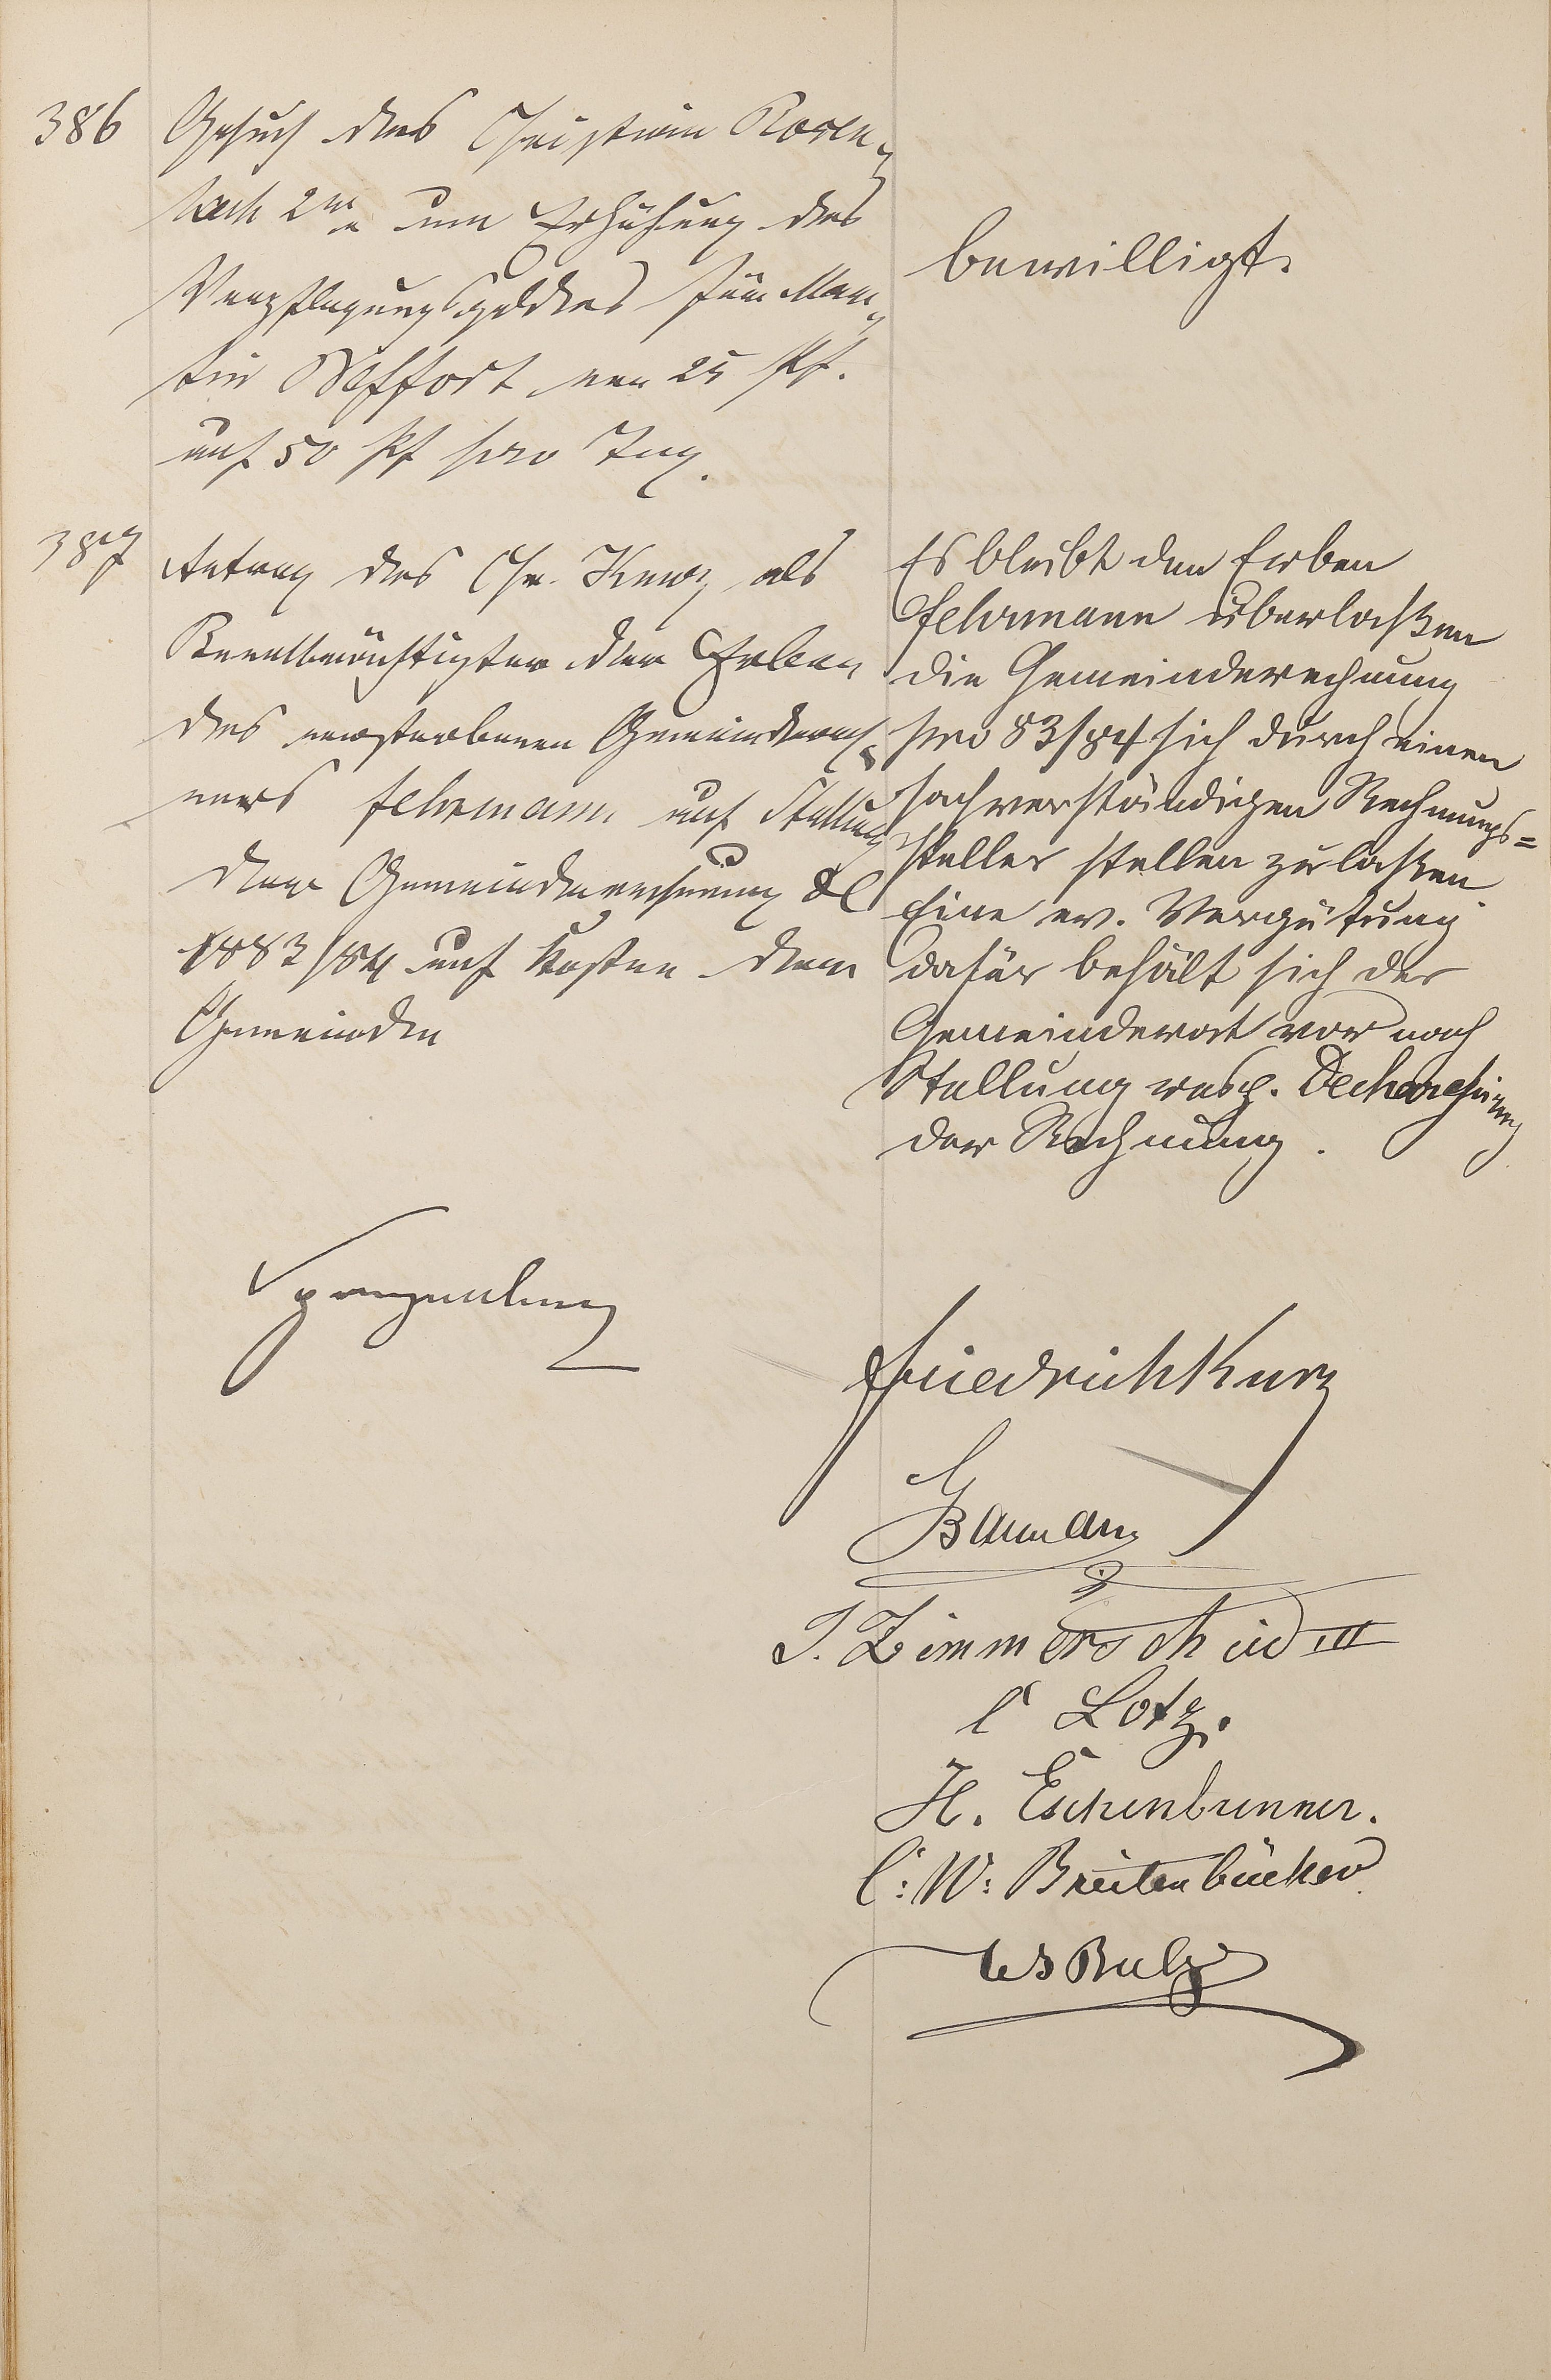 386 Gesuch des Christian Rosen-
bach 2ter um Erhöhung des
Verpflegungsgeldes für Mar-
tin Seffort von 25 Pf.
auf 50 Pf pro Tag.
bewilligt.
387 Antrag des Chr. Kurz als
Bevollmächtigter der Erben
des verstorbenen Gemeinderech-
ners Fehrmann auf Stellung
der Gemeinderechnung de
1883/84 auf Kosten der
Gemeinde
Es bleibt den Erben
Fehrmann überlaßen
die Gemeinderechnung
pro 83/84 sich durch einen
sachverständigen Rechnungs=
steller stellen zu laßen
Eine ev. Vergütung
dafür behält sich der
Gemeinderat vor nach
Stellung resp. Dechargirung
der Rechnung.
Friedrich Kurz
Bauman
J. Zimmerscheid III
C Lotz.
H. Eschenbrenner.
C: W: Breitenbücher